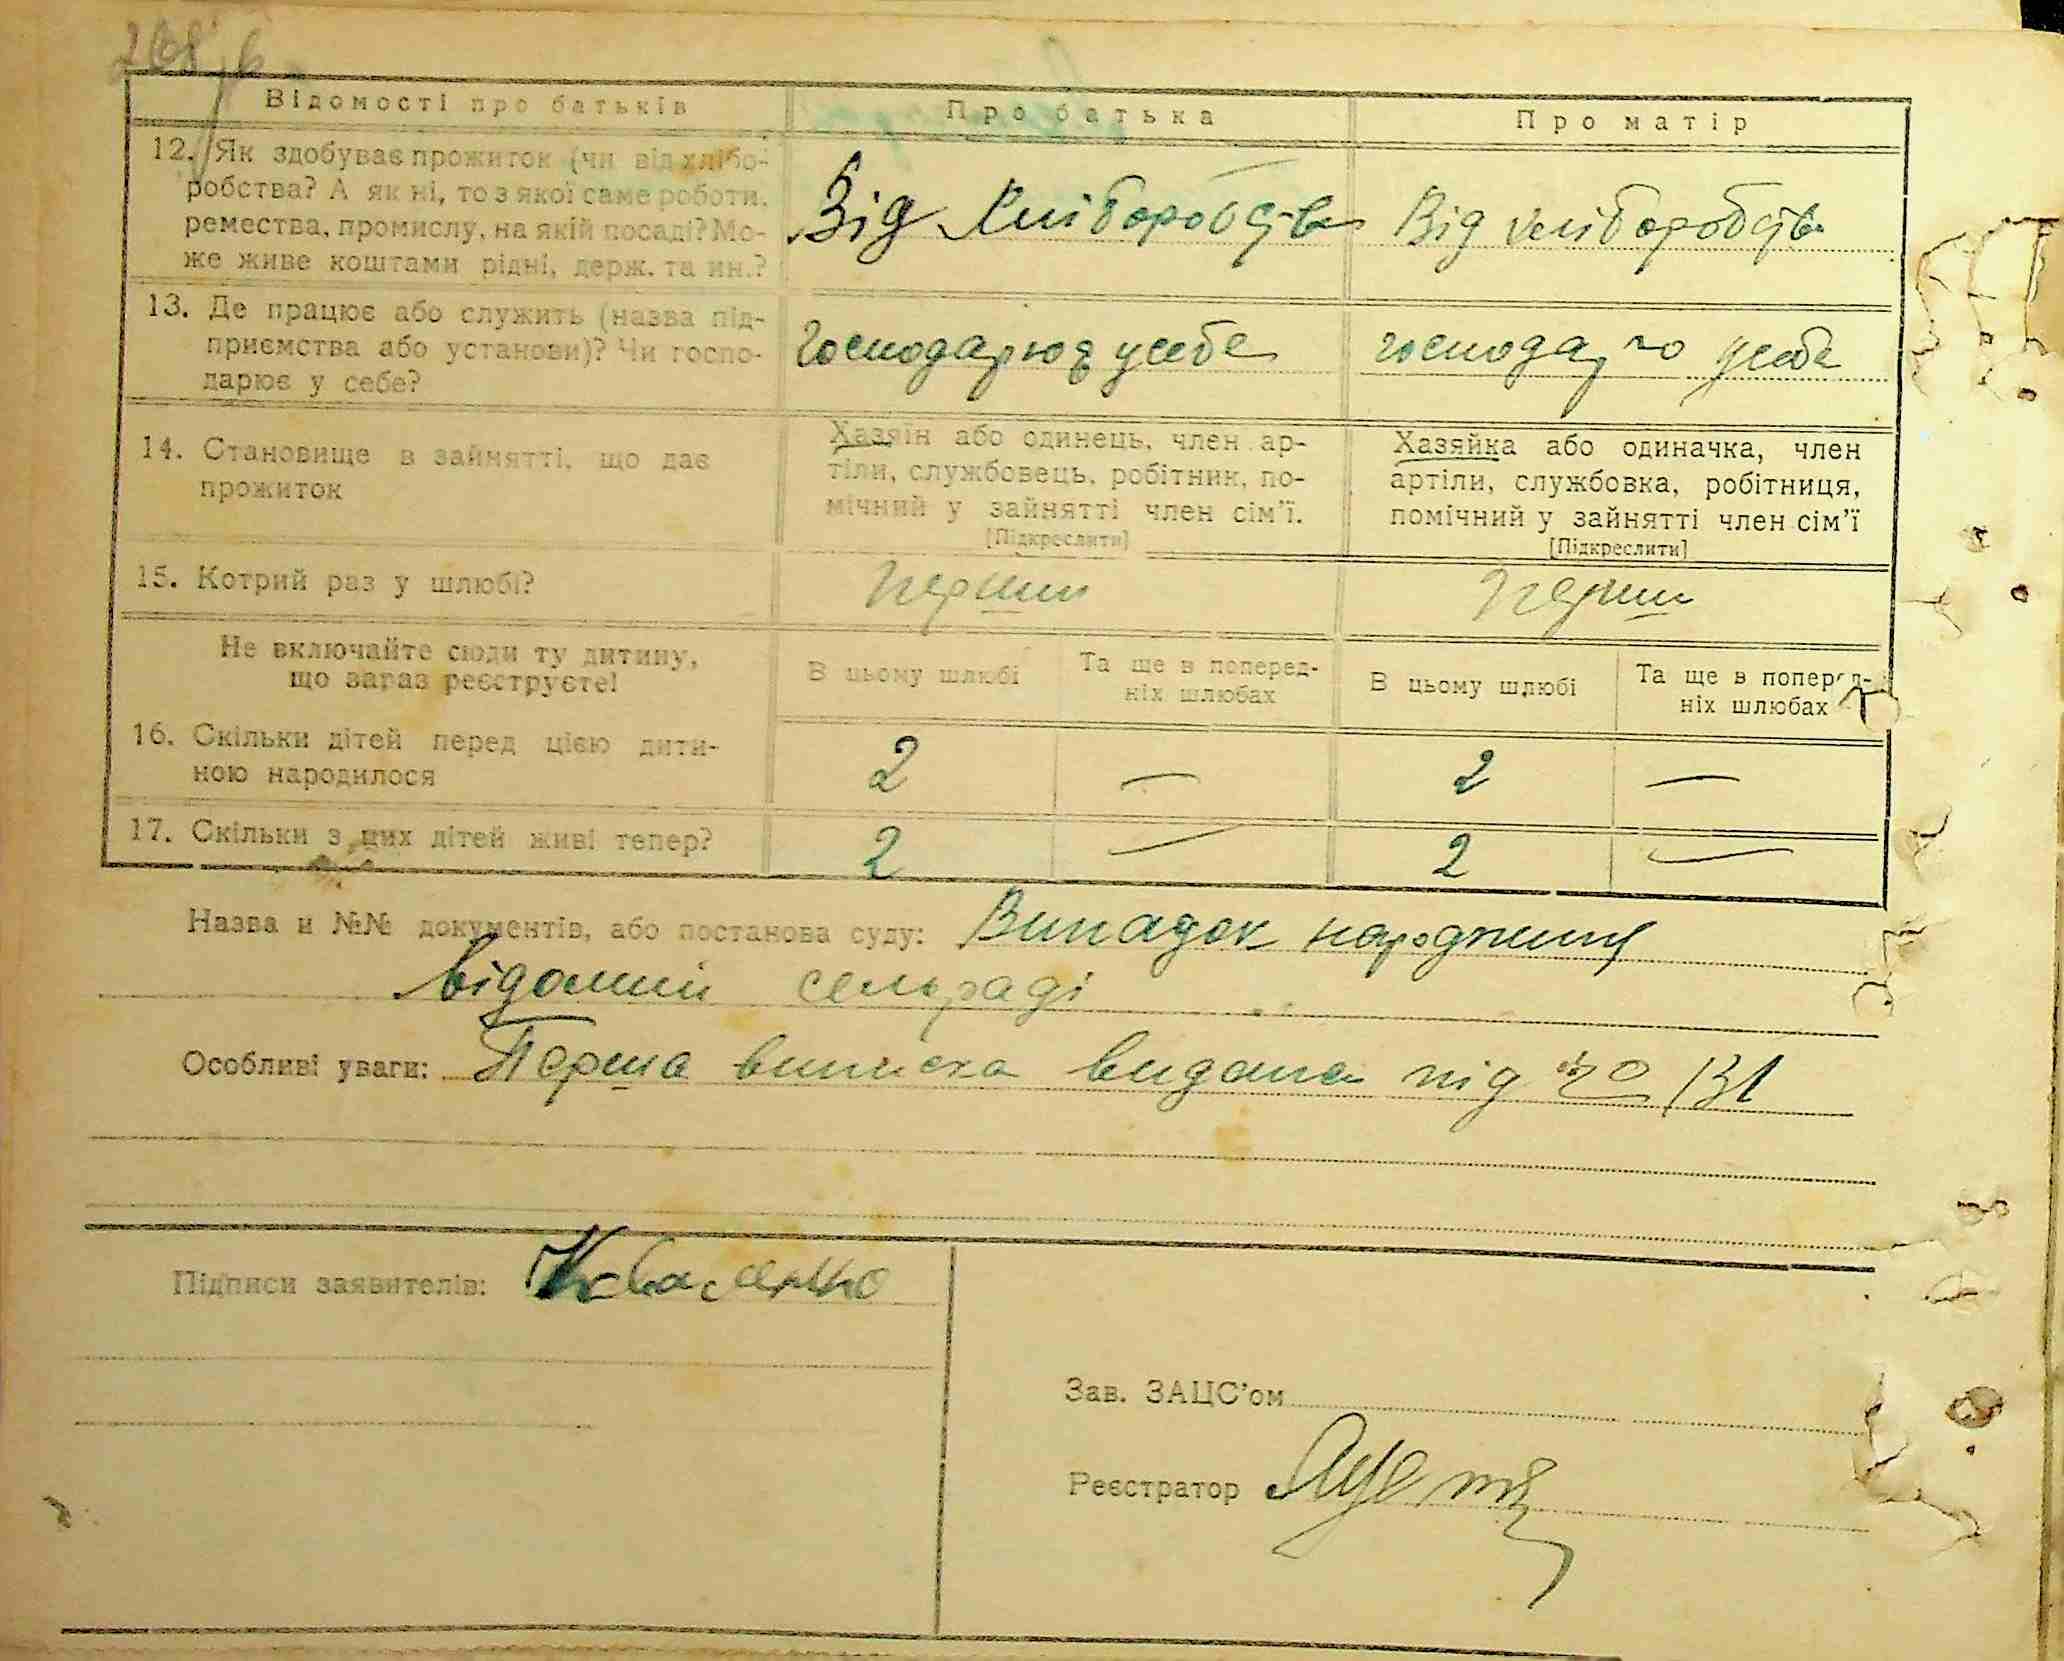 Відомості про батьків Про батька Про матір
12. Як здобуває прожиток (чи від хлібо-
робства? А як ні, то з якої саме роботи,
ремества, промислу, на якій посаді? Мо-
же живе коштами рідні, держ. та ин.?
Від Хліборобств Від хліборобств
13. Де працює або служить (назва під-
приємства або установи)? Чи госпо-
дарює у себе?
Господарює усебе господарю усебе
14. Становище в зайнятті, що дає
прожиток
Хазяїн або одинець, член ар-
тіли, службовець, робітник, по-
мічний у зайнятті член сім'ї.
[Підкреслити]
Хазяйка або одиначка, член
артіли, службовка, робітниця,
помічний у зайнятті член сім'ї
[Підкреслити]
15. Котрий раз у шлюбі? перший перший
Не включайте сюди ту дитину,
що зараз реєструєте!
В цьому шлюбі Та ще в поперед-
ніх шлюбах
В цьому шлюбі Та ще в поперед-
ніх шлюбах
16. Скільки дітей перед цією дити-
ною народилося
2 — 2 —
17. Скільки з цих дітей живі тепер? 2 — 2 —
Назва и №№ документів, або постанова суду: Випадок народження
відомий сельраді
Особливі уваги: Перша виписка видана під 20/31
Підписи заявителів:
Зав. ЗАЦС'ом
Реєстратор